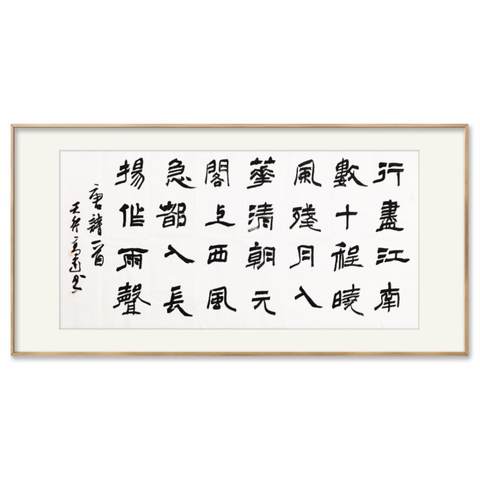 行盡江南
數十程曉
風殘月入
華清朝元
閣上西風
急都入長
揚作雨聲
唐詩一首